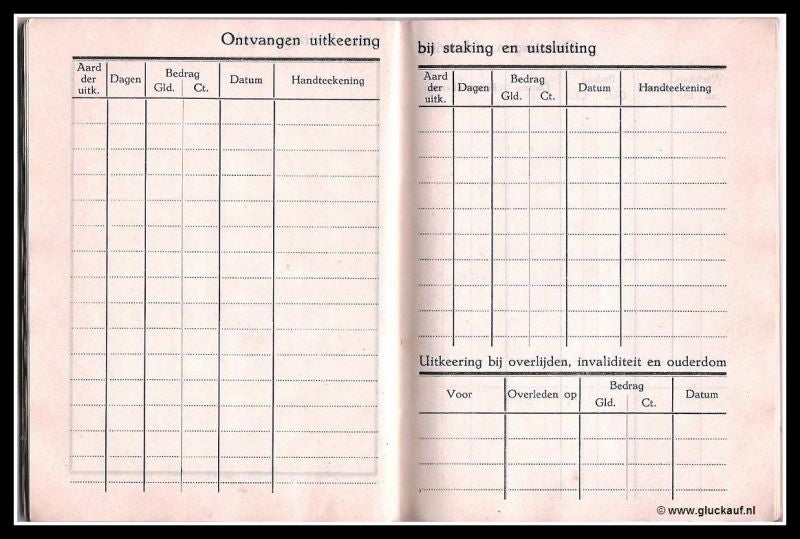 Ontvangen uitkeering
Aard der uitk. Dagen Bedrag Gld. Ct. Datum Handteekening
bij staking en uitsluiting
Aard der uitk. Dagen Bedrag Gld. Ct. Datum Handteekening
Uitkeering bij overlijden, invaliditeit en ouderdom
Voor Overleden op Bedrag Gld. Ct. Datum
© www.gluckauf.nl